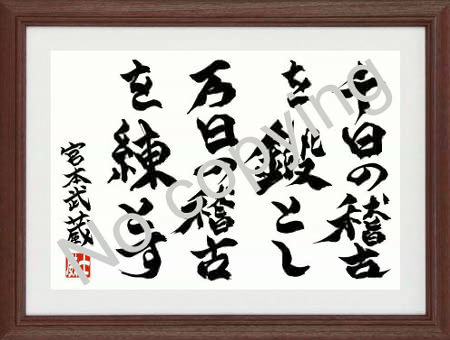 千日の稽古
を鍛とし
万日の稽古
を練とす
宮本武蔵
No copying